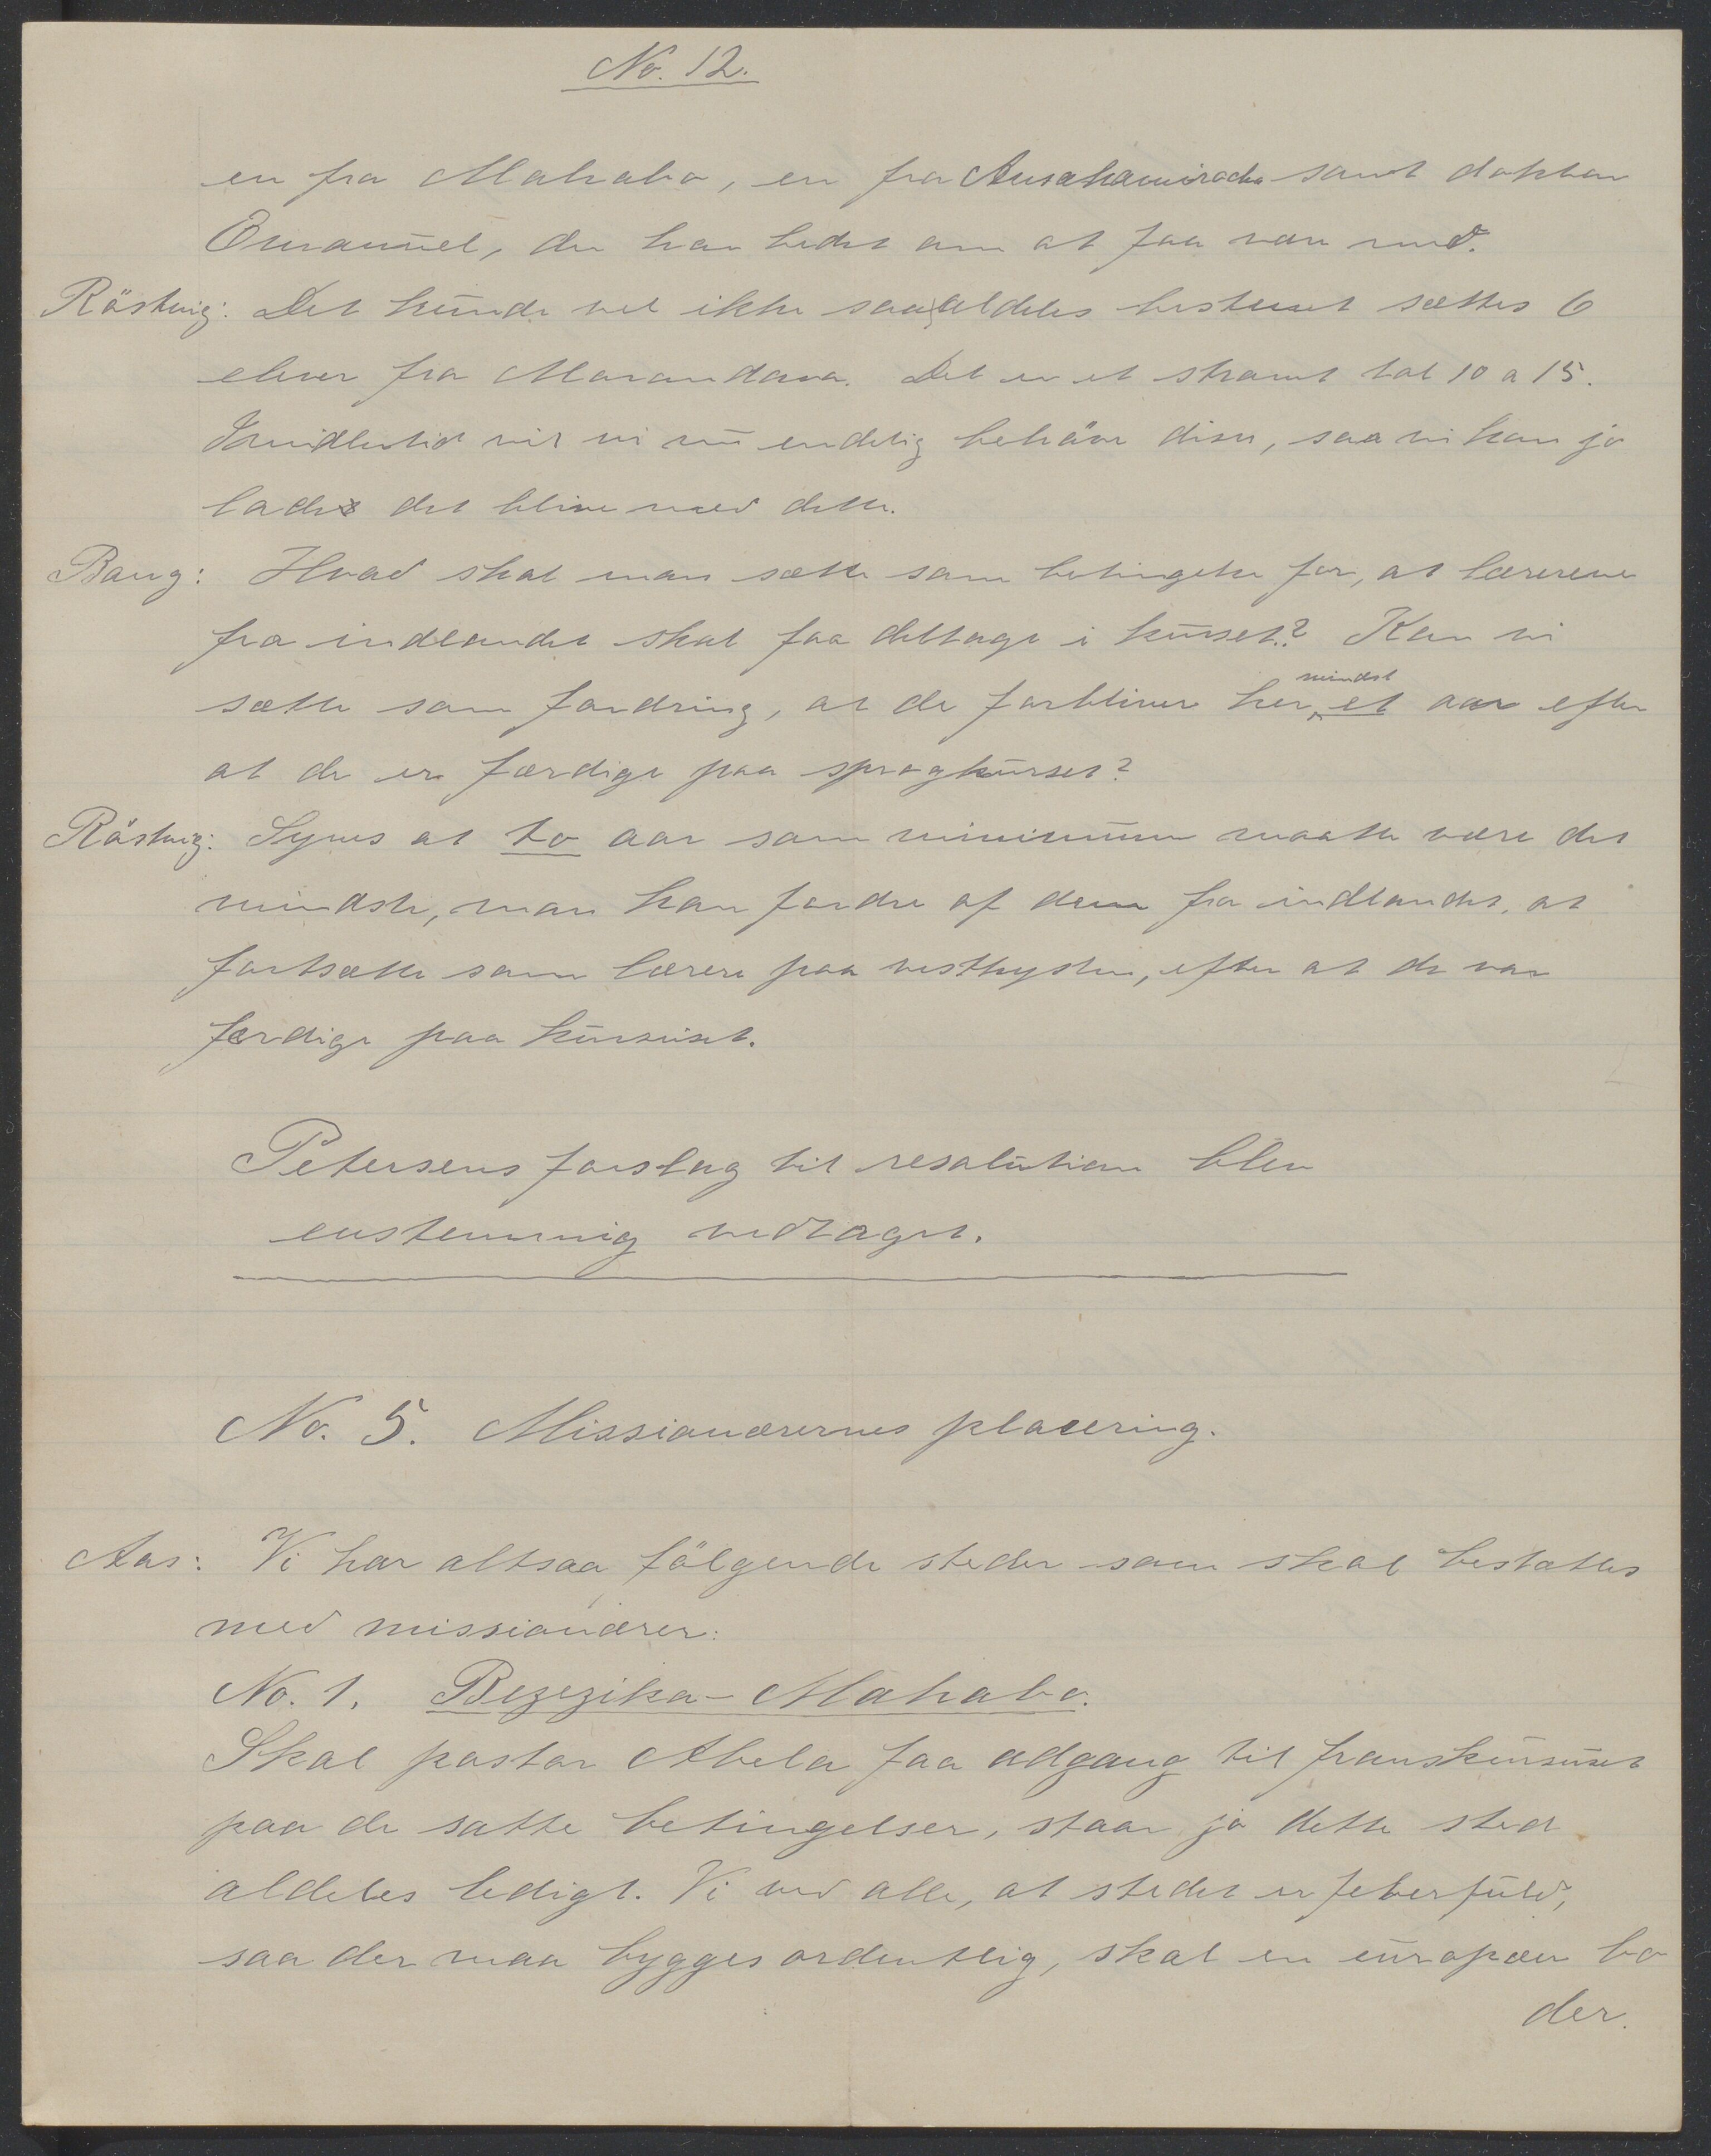 No. 12.
en fra Mahabo, en fra samt doktor
Emanuel, der har bedet om at faa være med.
Röstvig: Det kunde vel ikke saa aldeles bestemt sættes 6
elever fra Morondava. Det er et stramt tal 10 a 15.
Imidlertid vil vi nu endelig behöve disse, saa vi kan jo
lade det blive med dette.
Bang: Hvad skal man sætte som betingelse for, at lærerene
fra indlandet skal faa deltage i kurset? Kan vi
sætte som fordring, at de forbliver her mindst et aar efter
at de er færdige paa sprogkurset?
Röstvig: Synes at to aar som minimum maatte være det
mindste, man kan fordre af dem fra indlandet, at
fortsætte som lærere paa vestkysten, efter at de var
færdige paa kursuset.
Petersens forslag til resolution blev
enstemmig vedtaget.
No. 5. Missionærernes placering.
Aas: Vi har altsaa fölgende steder som skal besættes
med missionærer:
No. 1. Bezezika-Mahabo.
Skal pastor Abela faa adgang til franskkursuset
paa de satte betingelser, staar jo dette sted
aldeles ledigt. Vi ved alle, at stedet er feberfuld,
saa der maa bygges ordentlig, skal en europæer bo
der.